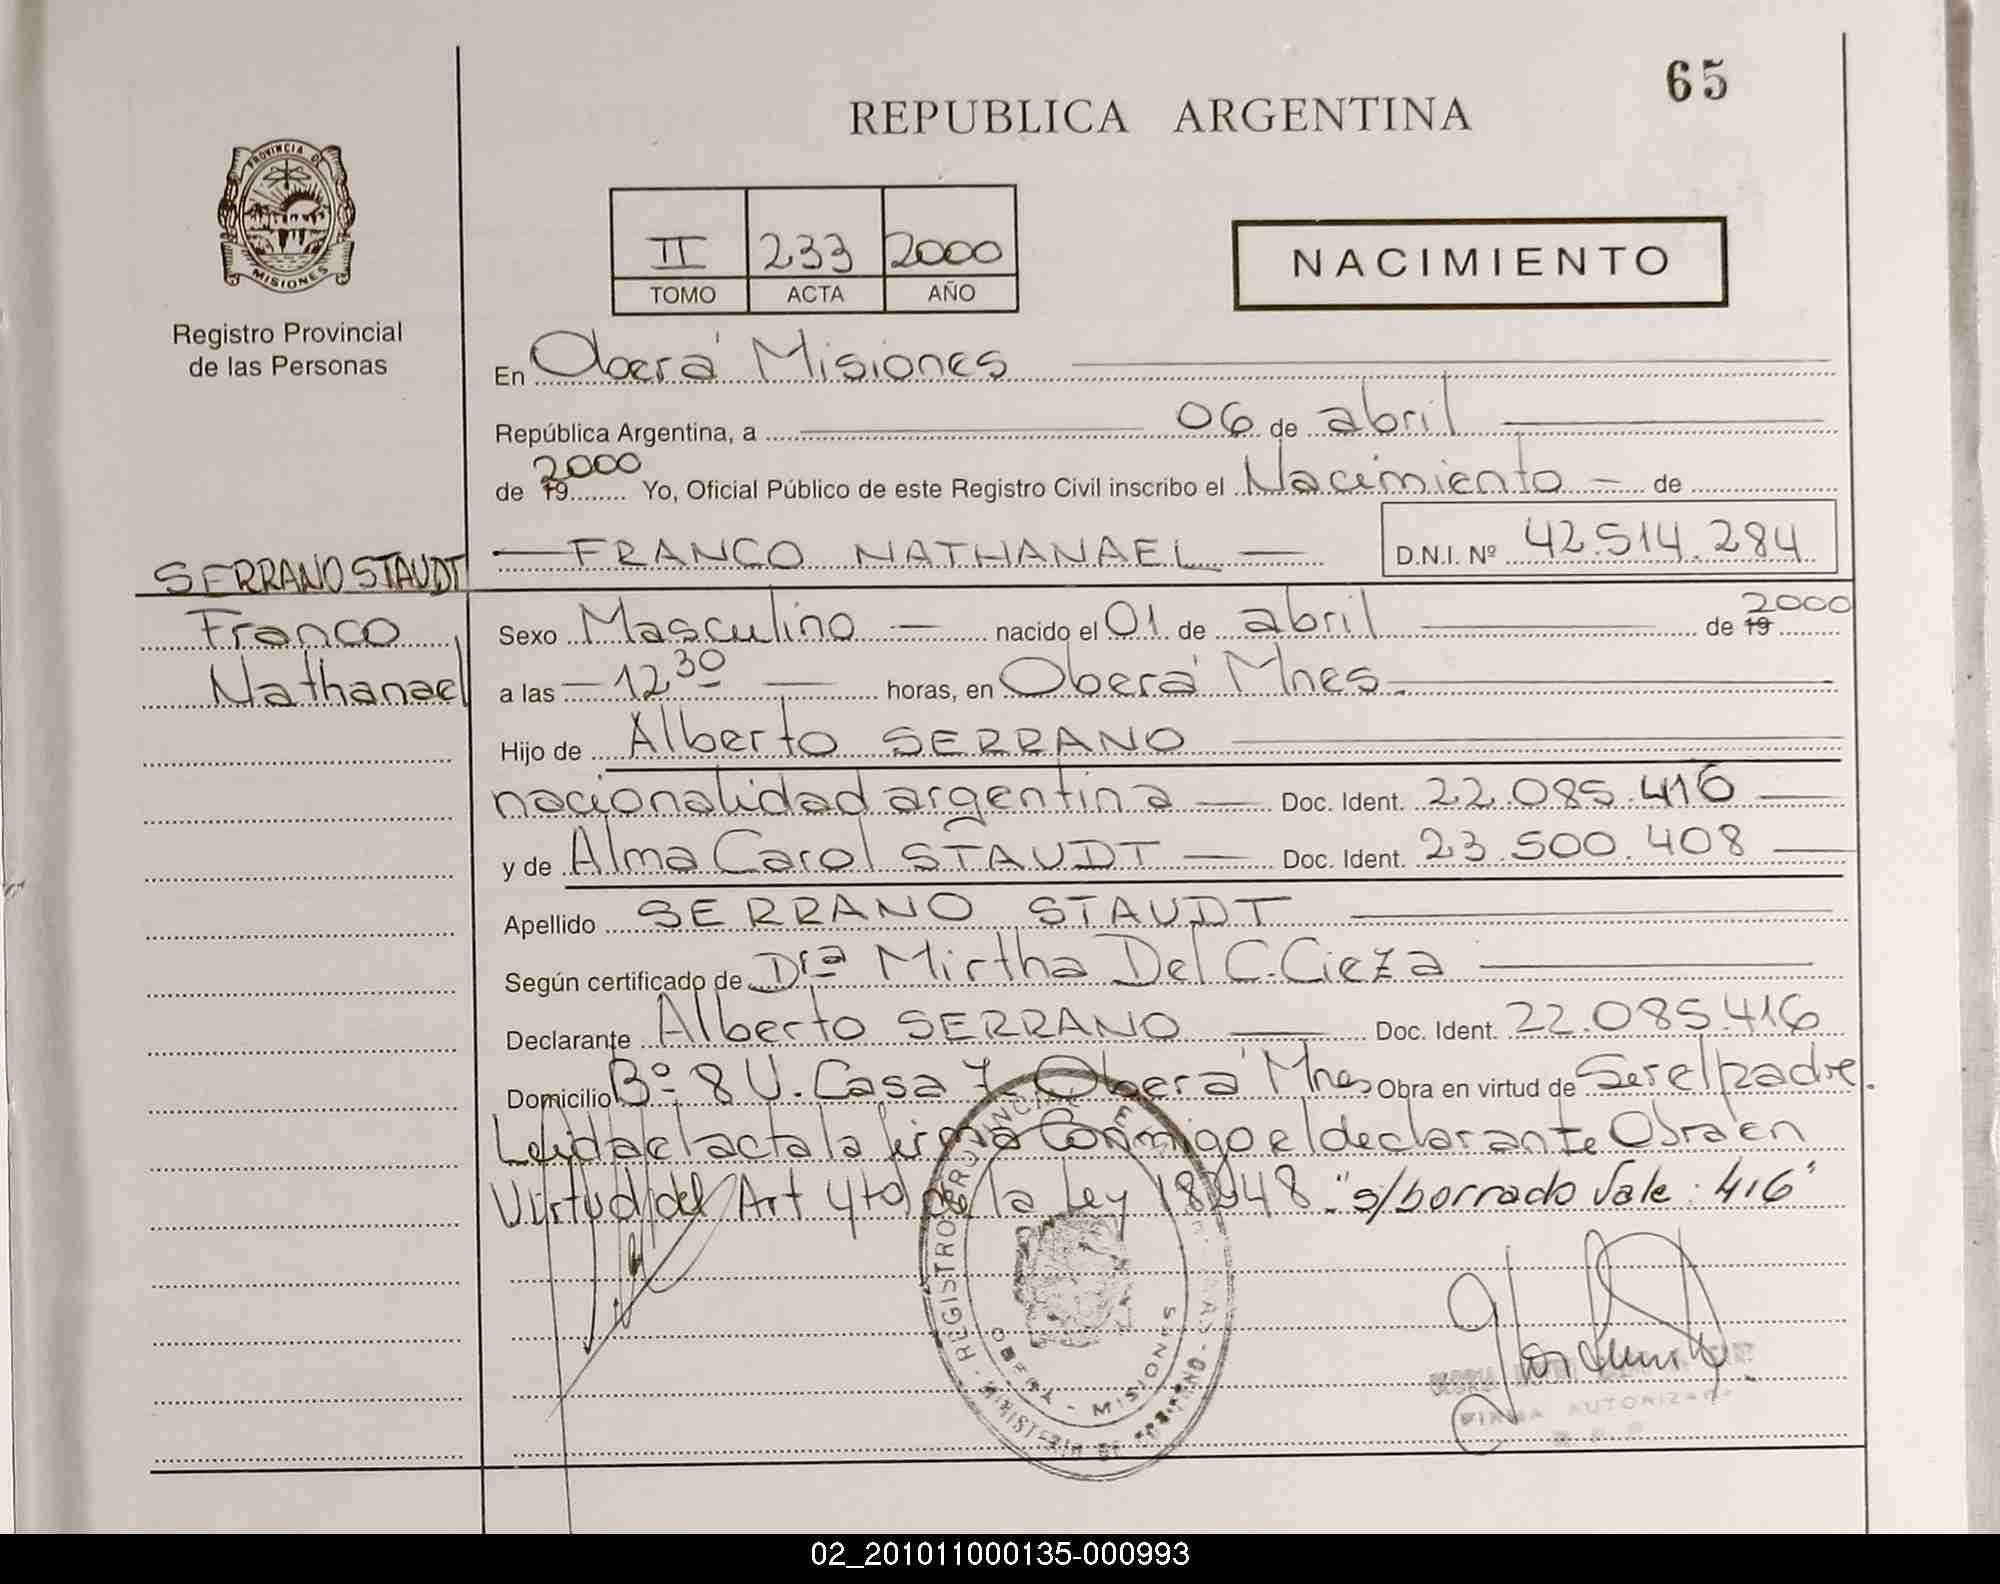 65
REPUBLICA ARGENTINA
PROVINCIA DE
MISIONES
Registro Provincial
de las Personas
II 233 2000
TOMO ACTA AÑO
NACIMIENTO
En Oberá Misiones
República Argentina, a 06 de abril
de 19 2000 Yo, Oficial Público de este Registro Civil inscribo el Nacimiento de
FRANCO NATHANAEL D.N.I. Nº 42.514.284
SERRANO STAUDT
Franco
Nathanael
Sexo Masculino nacido el 01 de abril de 19 2000
a las 12 30 horas, en Oberá Mnes.
Hijo de Alberto SERRANO
nacionalidad argentina Doc. Ident. 22.085.416
y de Alma Carol STAUDT Doc. Ident. 23.500.408
Apellido SERRANO STAUDT
Según certificado de Drª Mirtha Del C. Cieza
Declarante Alberto SERRANO Doc. Ident. 22.085.416
Domicilio Bº 8 U. Casa 7 Oberá Mnes Obra en virtud de Ser el padre.
Leída el acta la firma Conmigo el declarante Obra en
Virtud del Art 4to de la Ley 18248 "s/borrado Vale: 416"
REGISTRO PROVINCIAL
MINISTERIO DE GOBIERNO
OBERA - MISIONES
FIRMA AUTORIZADA
02_201011000135-000993